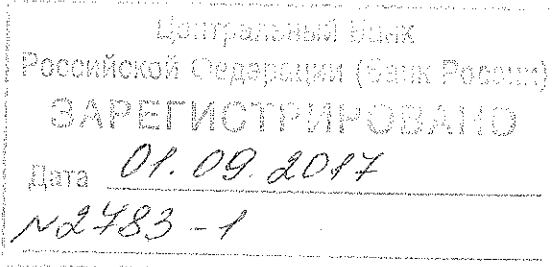 Центральный банк
Российской Федерации (Банк России)
ЗАРЕГИСТРИРОВАНО
Дата 01.09.2017
№2783-1